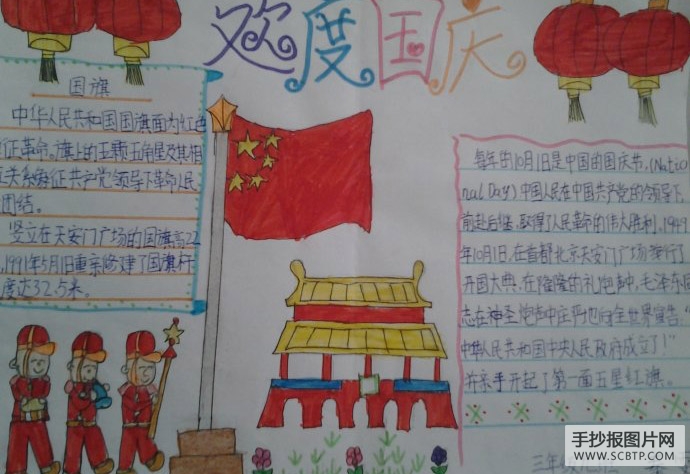 欢度国庆
国旗
中华人民共和国国旗面为红色
征革命。旗上的五颗五角星及其相
关系象征共产党领导下革命人民
团结。
竖立在天安门广场的国旗高22
1991年5月1日重新修建了国旗杆
度达32.5米。
每年的10月1日是中国的国庆节，(Natio
nal Day) 中国人民在中国共产党的领导下，
前赴后继，取得了人民革命的伟大胜利，1949
年10月1日，在首都北京天安门广场举行了
开国大典，在隆隆的礼炮声中，毛泽东同
志在神圣炮声中庄严地向全世界宣告，“
中华人民共和国中央人民政府成立了！”
并亲手升起了第一面五星红旗。
三年
手抄报图片网
WWW.SCBTP.COM